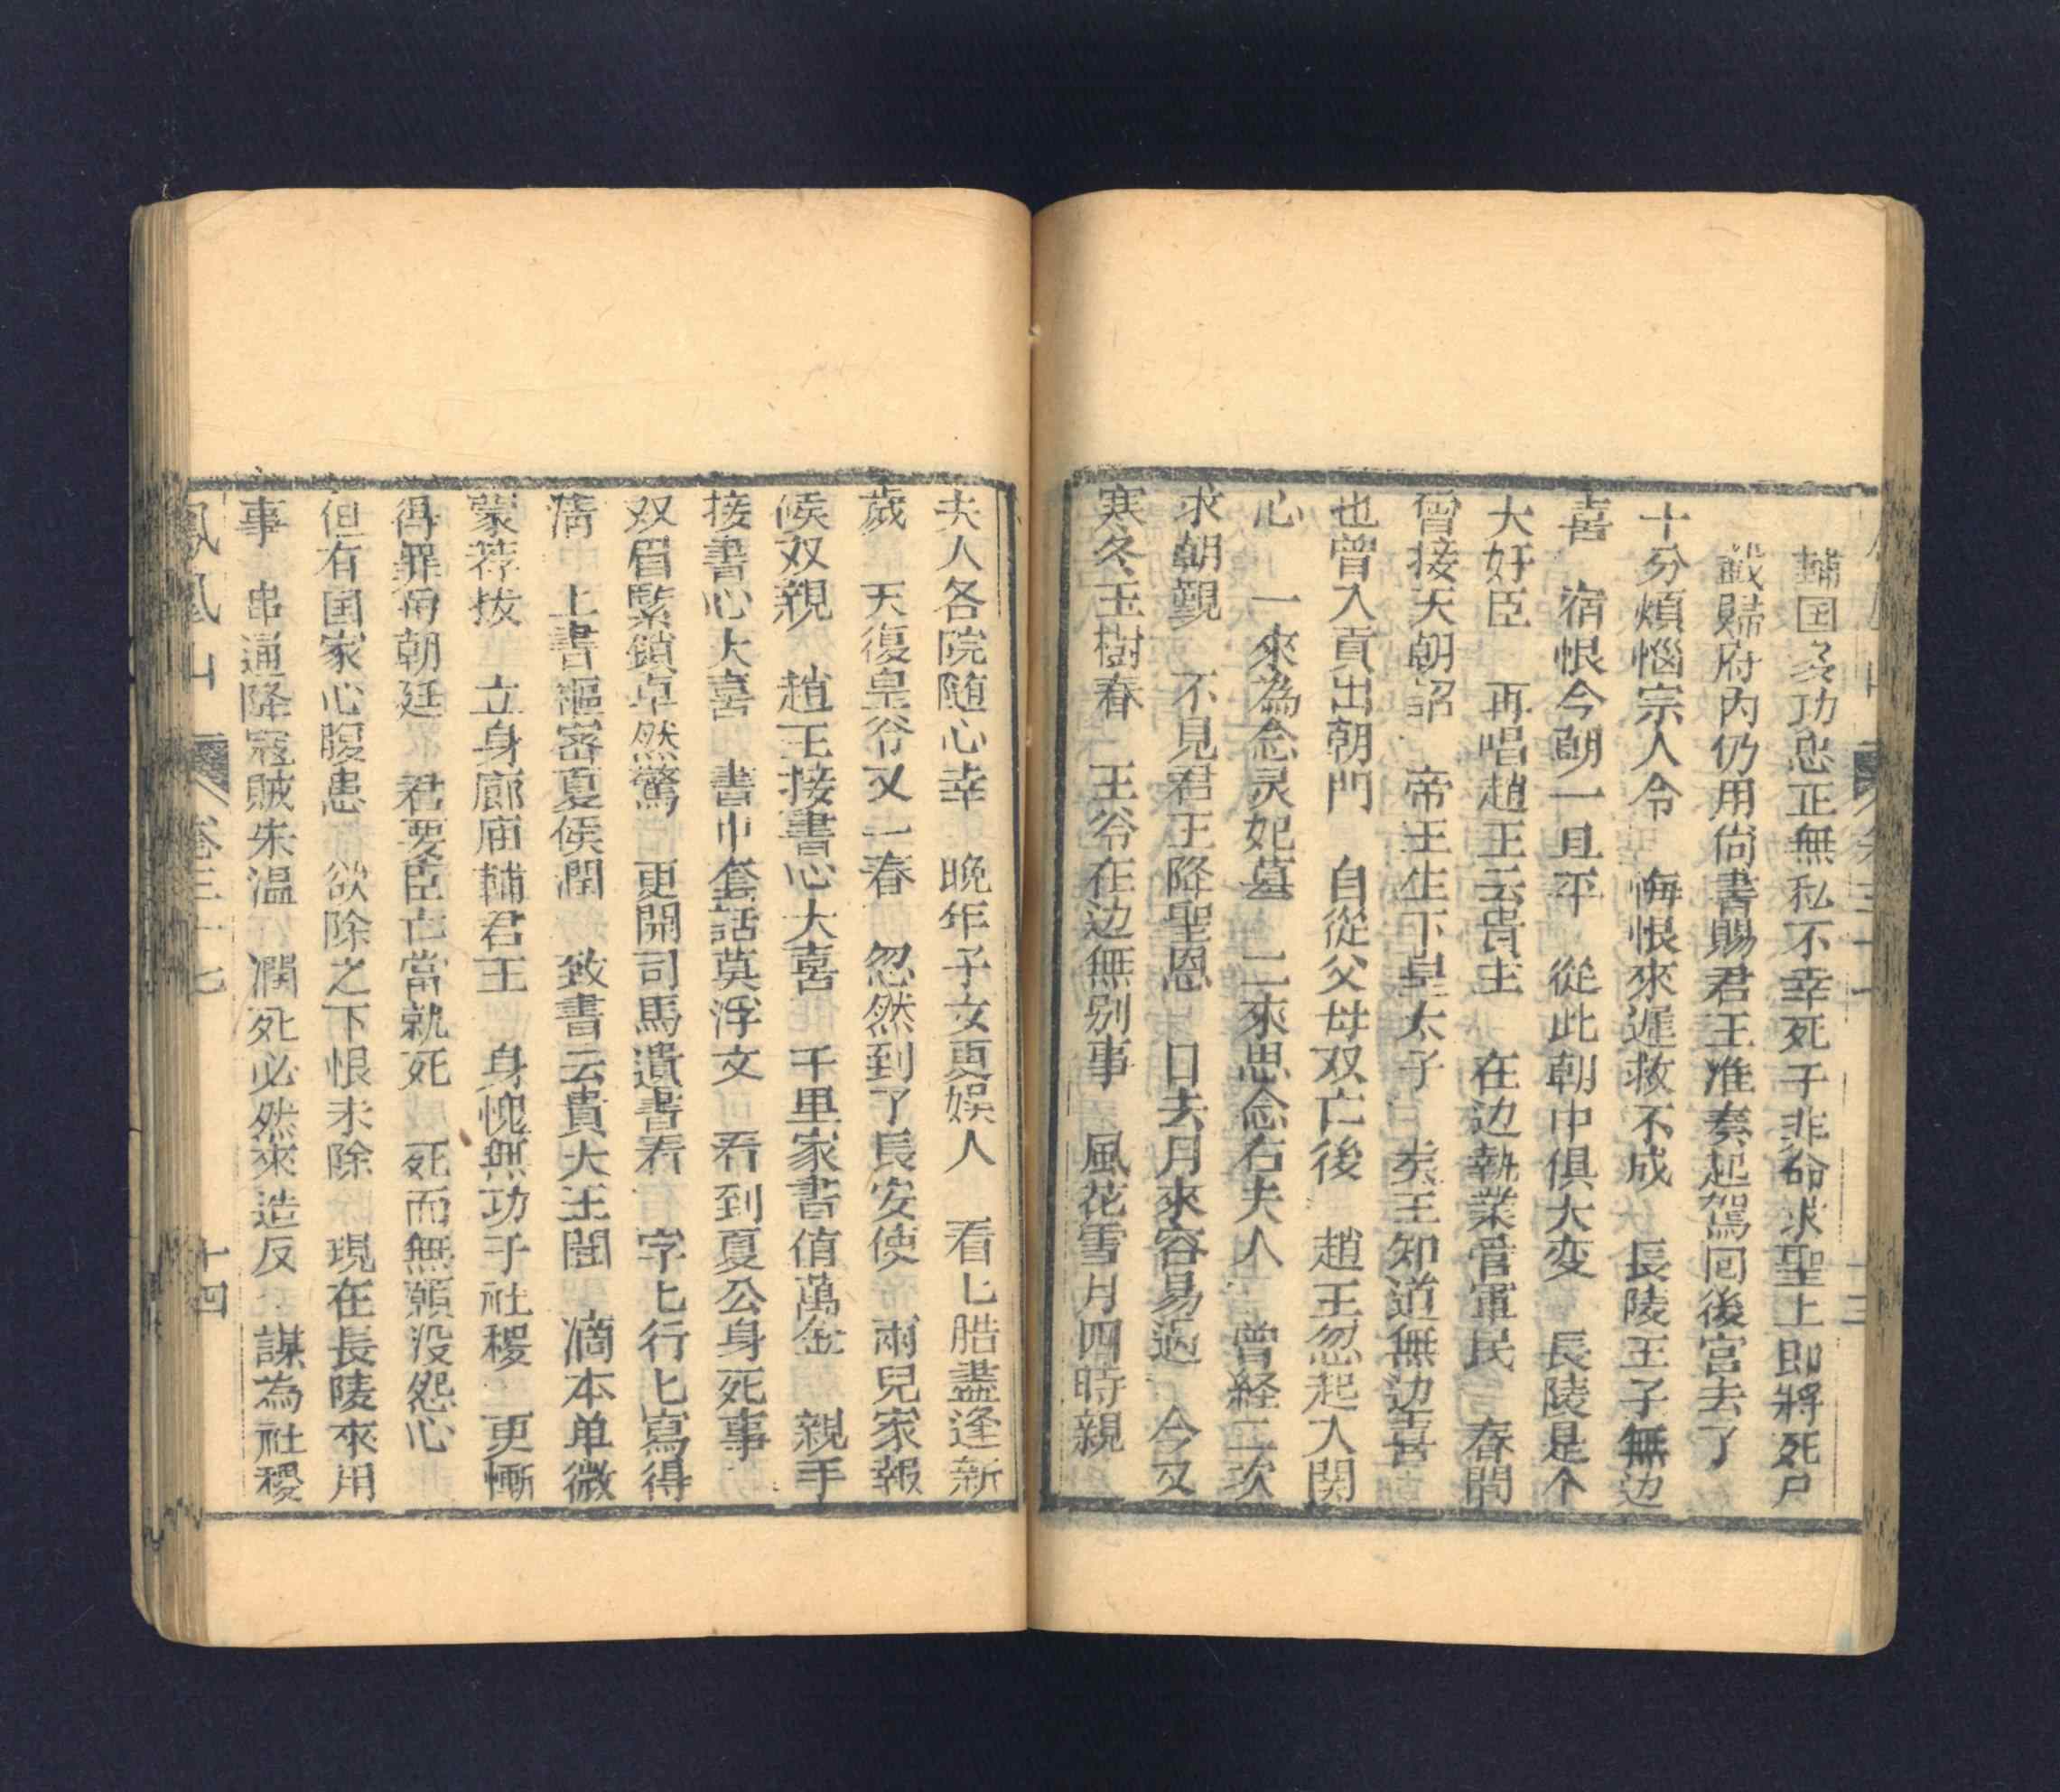 輔国多功忠正無私不幸死于非命求聖上即將死尸
載歸府内仍用尙書賜君王准奏起駕囘後宮去了
十分煩惱宗人令　悔恨來遲救不成　長陵王子無边
喜　宿恨今朝一旦平　從此朝中俱大変　長陵是个
大奸臣　再唱趙王云貴主　在边執業管軍民　春間
曾接天朝詔　帝王生下皇太子　炎王知道無边喜
也曾入貢出朝門　自從父母双亡後　趙王忽起入関
心　一來為念灵妃墓　二來思念石夫人　曾経二次
求朝覲　不見君王降聖恩　日去月來容易過　今又
寒冬玉樹春　王爷在边無别事　風花雪月四時親
夫人各院随心幸　晚年子女更娱人　看七皓盡逢新
歲　天復皇爷又一春　忽然到了長安使　兩兒家報
候双親　趙王接書心大喜　千里家書値萬金　親手
接書心大喜　書中套話莫浮文　看到夏公身死事
双眉緊鎖卓然驚　更開司馬遺書看　字七行七寫得
清　上書樞密夏侯潤　致書云貴大王閣　滴本单微
蒙荐拔　立身廊庙輔君王　身愧無功于社稷　更慚
得罪為朝廷　君要臣亡當就死　死而無願没怨心
但有国家心腹患　欲除之下恨未除　現在長陵來用
事　串通降寇賊朱温　潤死必然來造反　謀為社稷
鳳凰山　卷三十七　十四